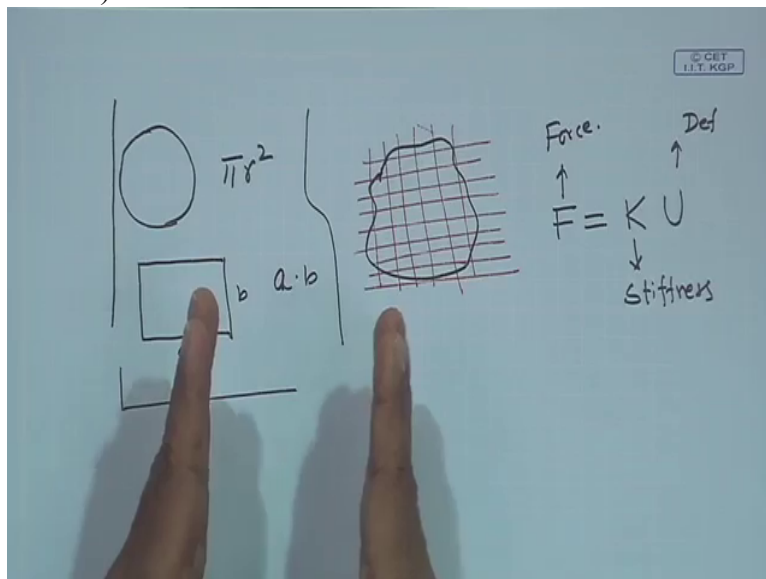 © CET
I.I.T. KGP
πr²
b
a·b
Force.
Def
F = K U
Stiffness